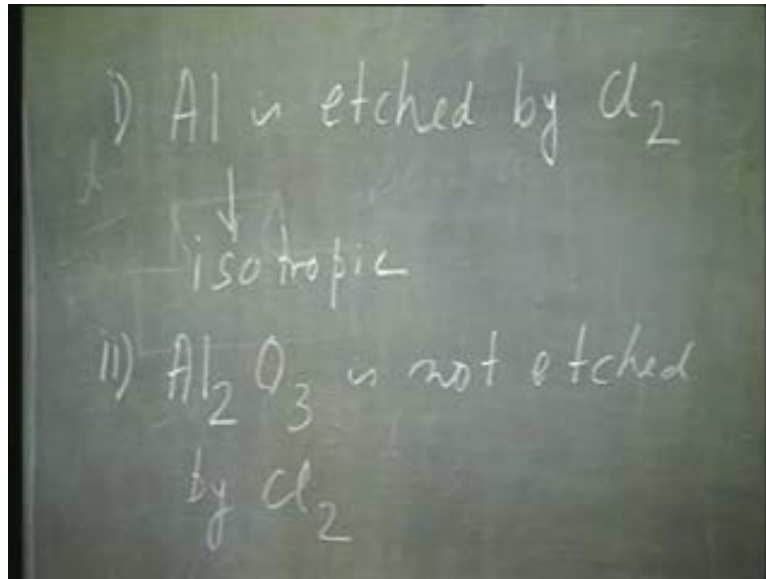 I) Al is etched by Cl2
↓
isotropic
II) Al2O3 is not etched
by Cl2